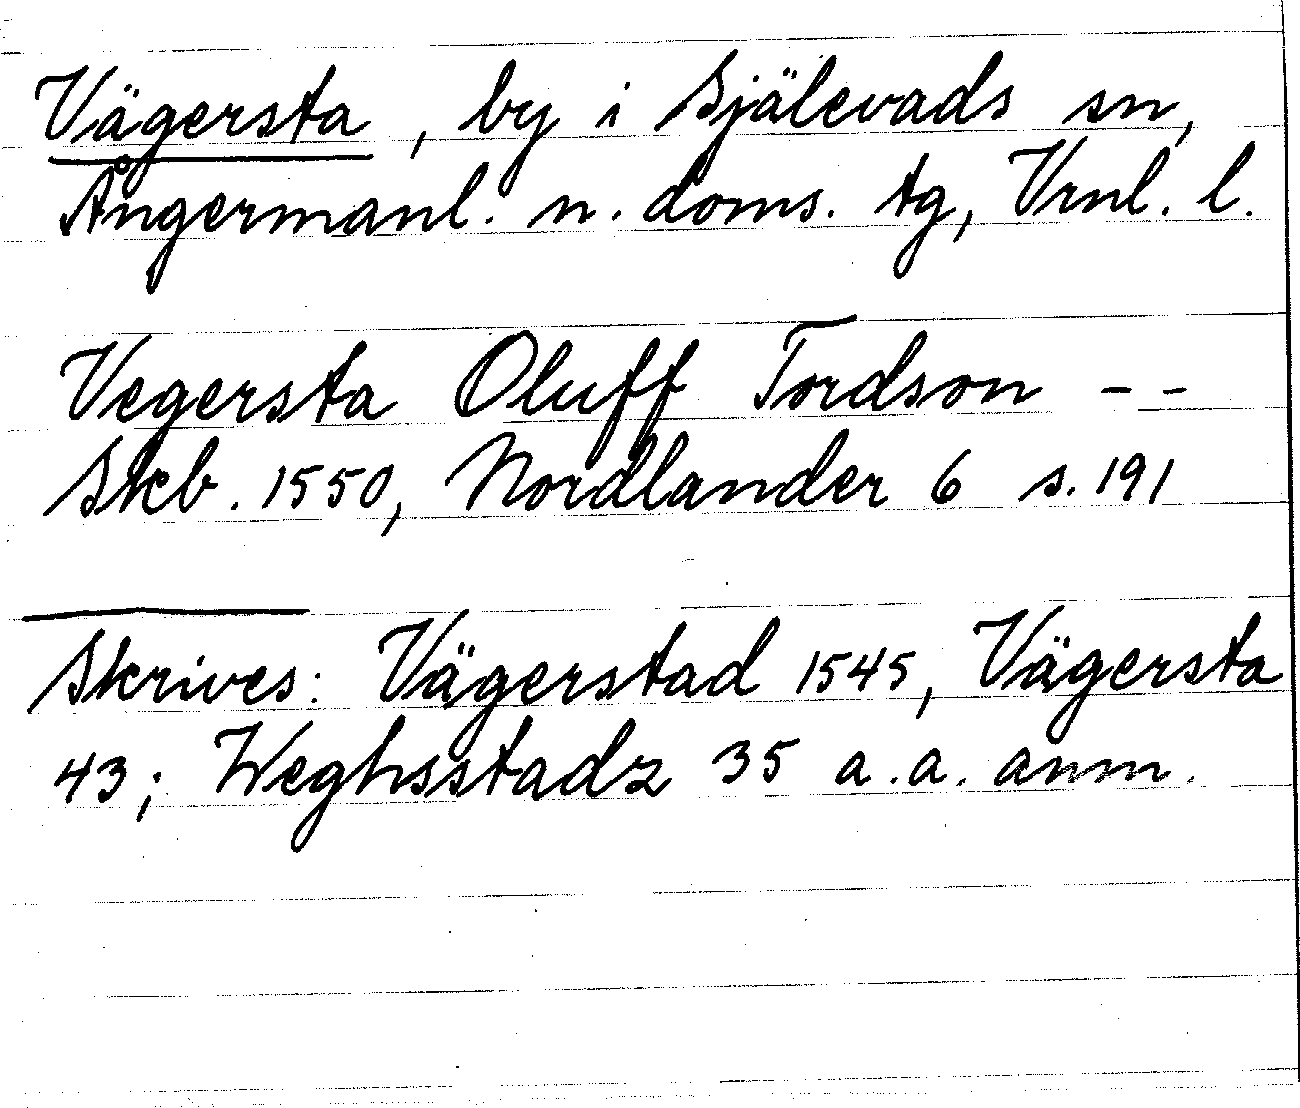 Vägersta, by i Själevads sn,
Ångermanl. n. doms. tg, Vrnl. l.
Vegersta Oluff Tordson - -
Skb. 1550, Nordlander 6 s. 191
Skrives: Vägerstad 1545, Vägersta
43; Weghsstadz 35 a.a. anm.